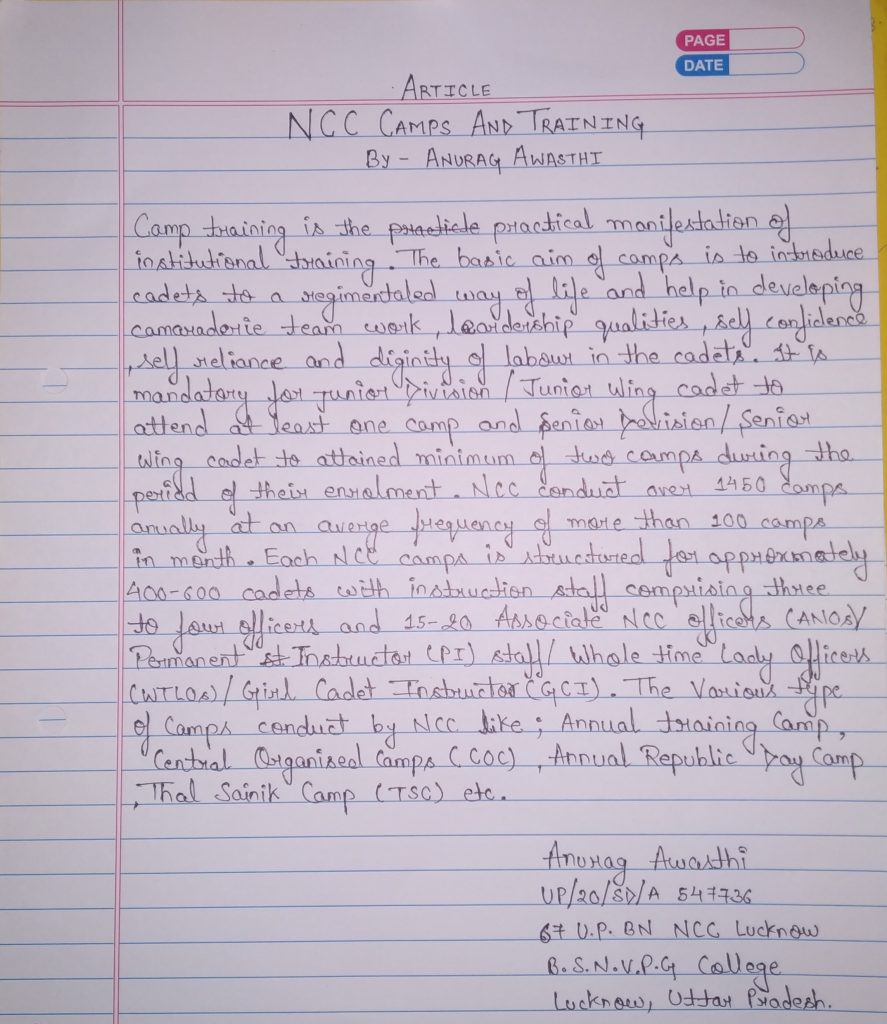 PAGE
DATE
ARTICLE
NCC CAMPS AND TRAINING
By - ANURAG AWASTHI
Camp training is the practicle practical manifestation of
institutional training. The basic aim of camps is to introduce
cadets to a regimentaled way of life and help in developing
camaraderie team work, leardership qualities, self confidence
, self reliance and diginity of labour in the cadets. It is
mandatory for junior Division / Junior Wing cadet to
attend at least one camp and Senior Devision / Senior
Wing cadet to attained minimum of two camps during the
period of their enrolment. NCC conduct over 1450 Camps
anually at an averge frequency of more than 100 camps
in month. Each NCC camps is structured for approxmately
400-600 cadets with instruction staff comprising three
to four officers and 15-20 Associate NCC officers (ANOs)/
Permanent st Instructor (PI) staff/ Whole time Lady Officers
(WTLOs)/ Girl Cadet Instructor (GCI). The Various type
of Camps conduct by NCC like; Annual training Camp,
Central Organised Camps (COC), Annual Republic Day Camp
, Thal Sainik Camp (TSC) etc.
Anurag Awasthi
UP/20/SD/A 547736
67 U.P. BN NCC Lucknow
B.S.N.V.P.G College
Lucknow, Uttar Pradesh.